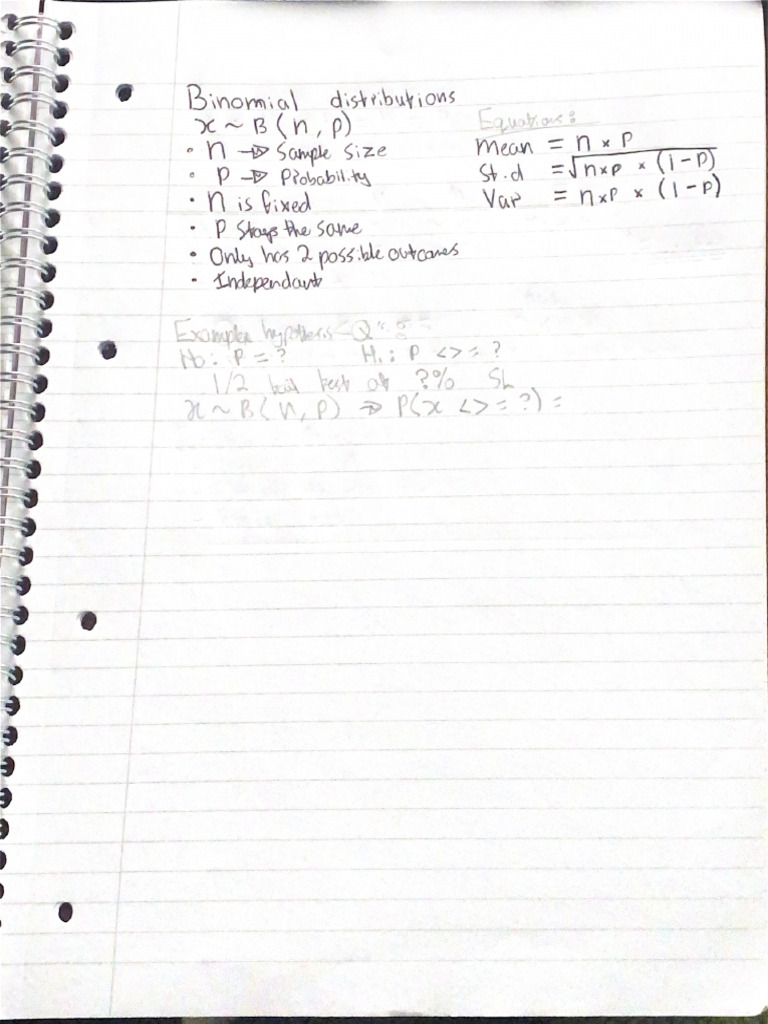 Binomial distributions
x ~ B(n, p)
• n → Sample size
• P → Probability
• n is fixed
• P stays the same
• Only has 2 possible outcomes
• Independant
Equations:
mean = n × P
St.d = √n×p × (1-P)
Var = n×p × (1-P)
Example hypothesis Q's:
H0: P = ? H1: P <>= ?
1/2 tail test at ?% SL
x ~ B(n, p) → P(x <>= ?) =